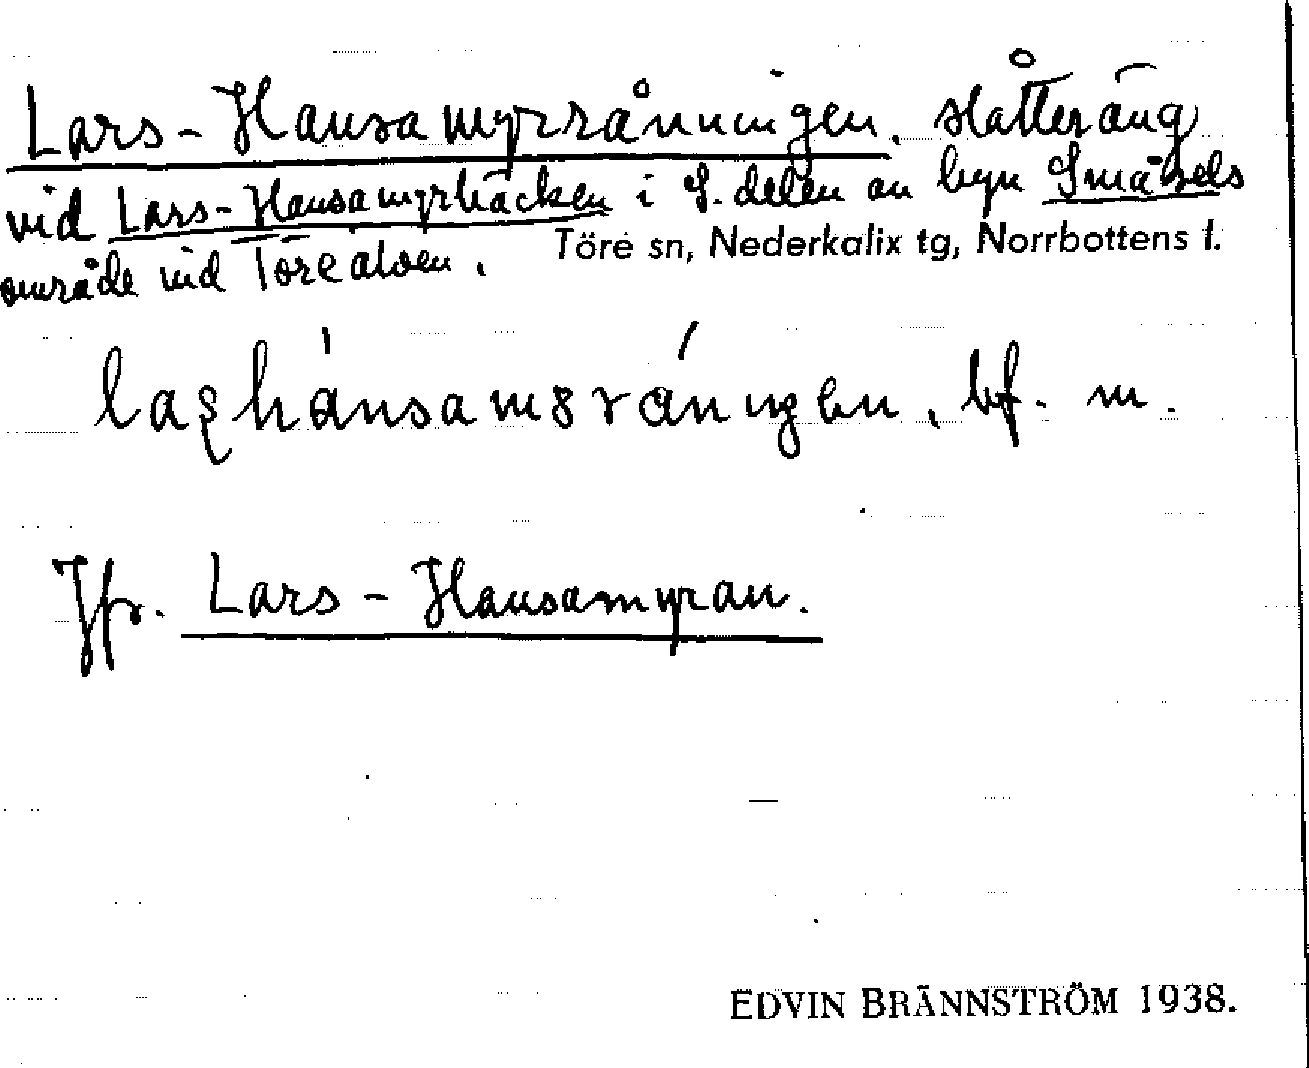 Lars-Hansamyrråningen. slåtteräng
vid Lars-Hansamyrbäcken i S. delen av byn Småsels
område vid Töreälven.
Töre sn, Nederkalix tg, Norrbottens l.
bf. m.
Jfr. Lars-Hansamyran.
EDVIN BRÄNNSTRÖM 1938.